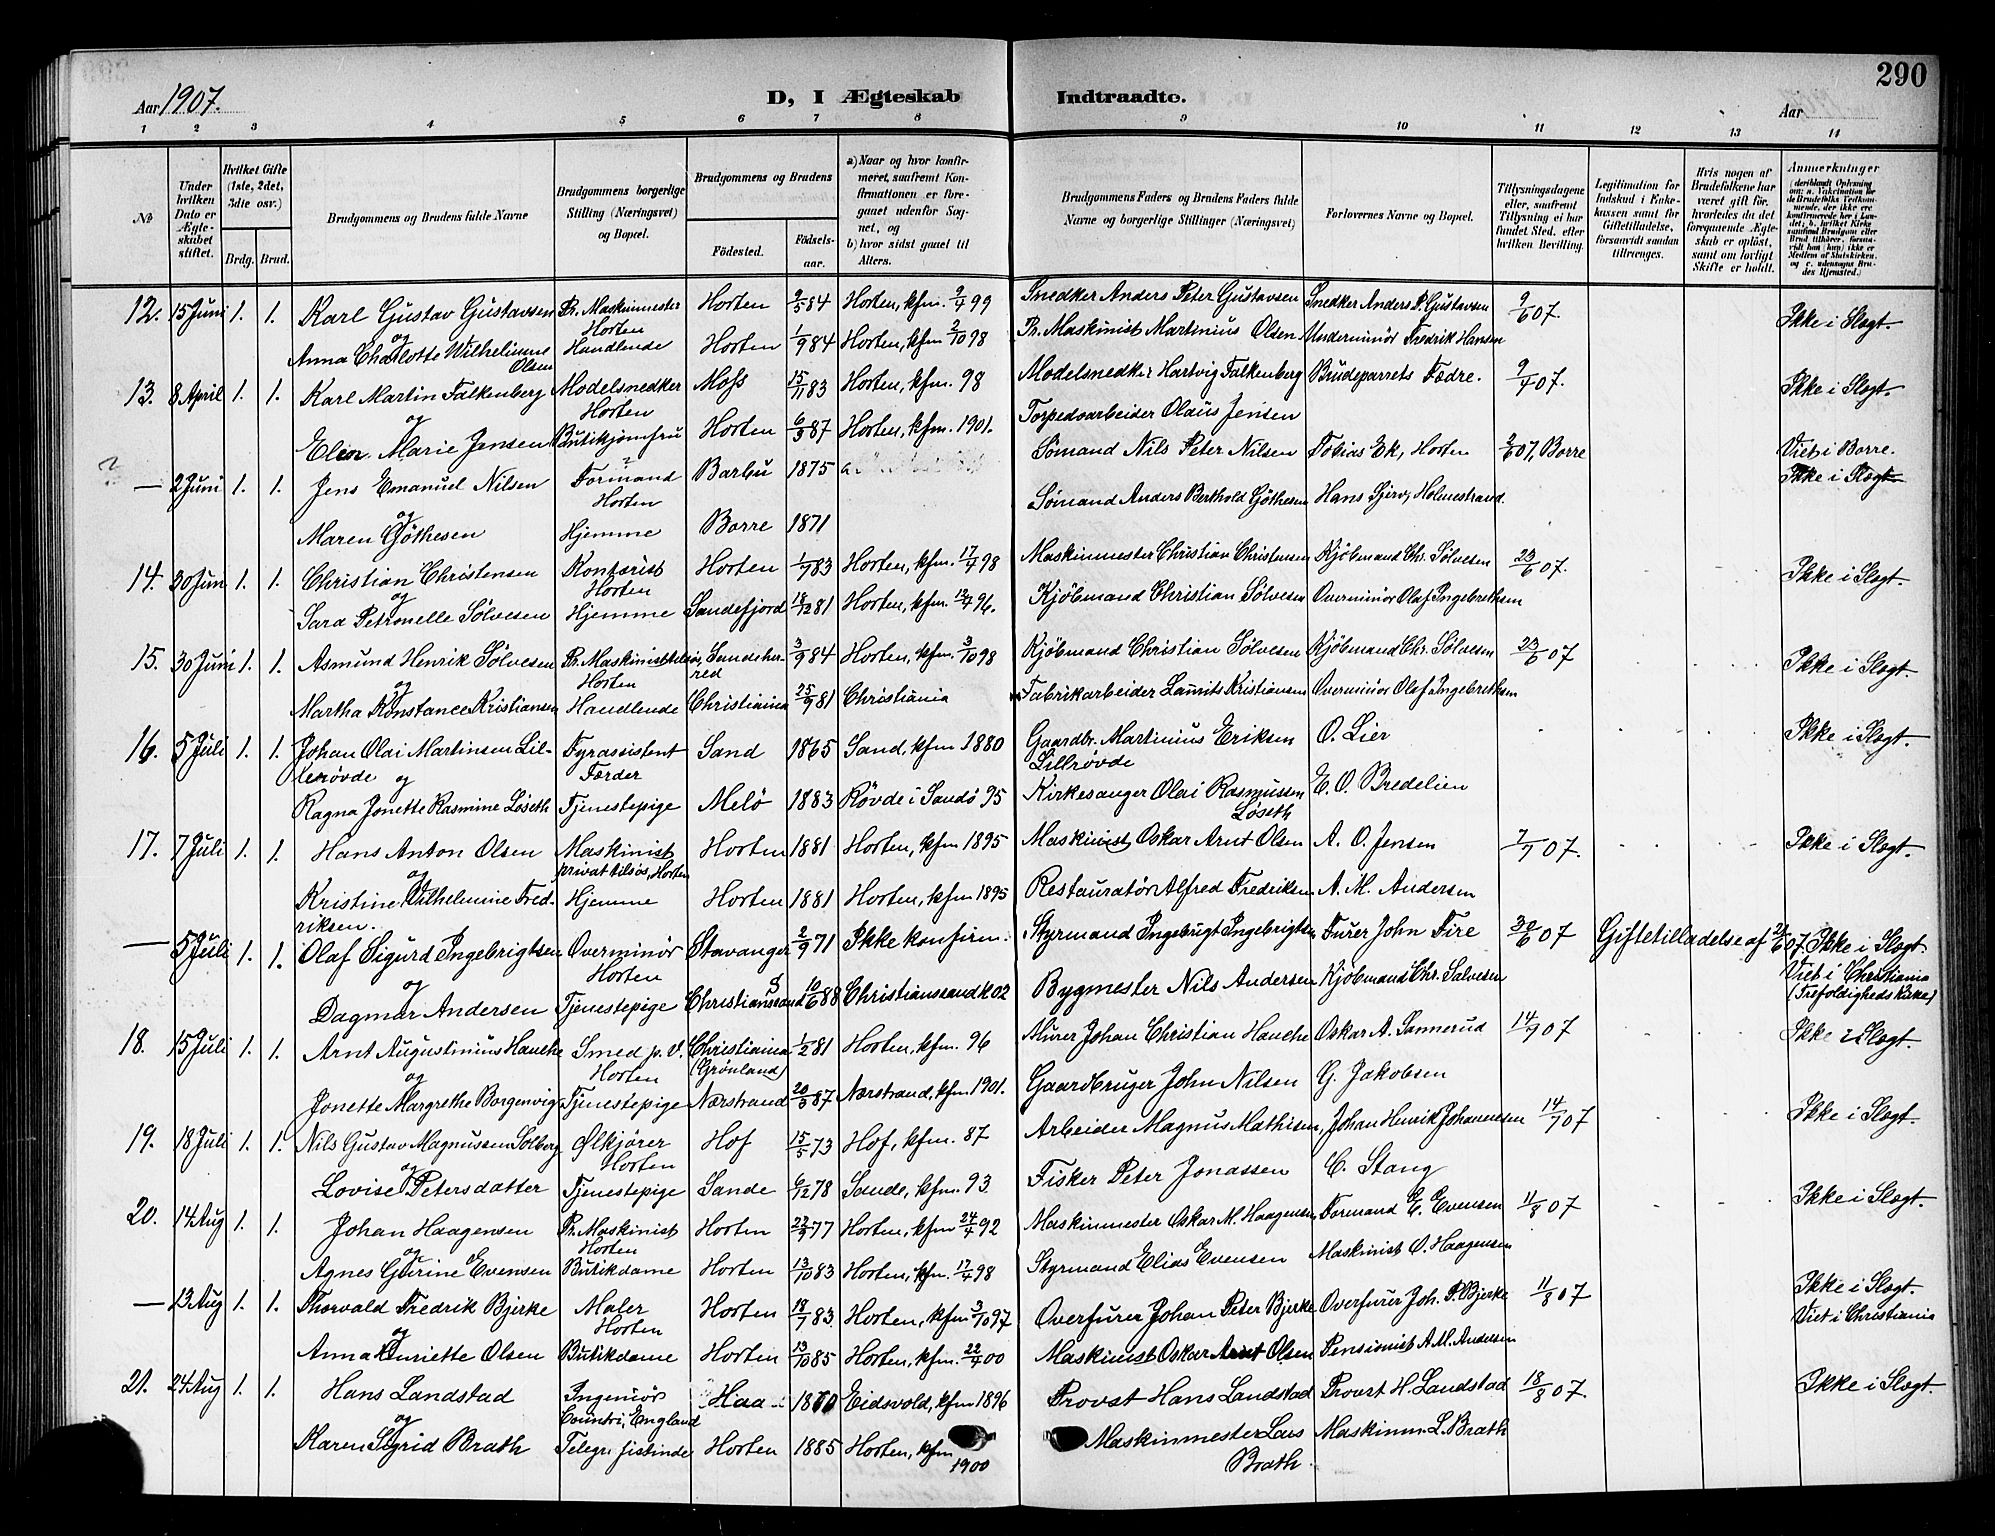 290
Aar 1907.
D, I Ægteskab Indtraadte.
Aar
1 2 3 4 5 6 7 8 9 10 11 12 13 14
No
Under hvilken Dato er Ægteskabet stiftet.
Hvilket Gifte (1ste, 2det, 3die osv.)
Brdg. Brud.
Brudgommens og Brudens fulde Navne
Brudgommens borgerlige Stilling (Næringsvei) og Bopæl.
Brudgommens og Brudens
Fødested. Fødselsaar.
a) Naar og hvor konfirmeret, saafremt Konfirmationen er foregaaet udenfor Sognet, og
b) hvor sidst gaaet til Alters.
Brudgommens Faders og Brudens Faders fulde Navne og borgerlige Stillinger (Næringsvei)
Forlovernes Navne og Bopæl.
Tillysningsdagene eller, saafremt Tillysning ei har fundet Sted, efter hvilken Bevilling.
Legitimation for Indskud i Enkekassen samt for Giftetilladelse, forsaavidt saadan tiltrænges.
Hvis nogen af Brudefolkene har været gift før, hvorledes da det foregaaende Ægteskab er opløst, samt om lovligt Skifte er holdt.
Anmerkninger
12. 15 Juni 1. 1. Karl Gustav Gustavsen Pr. Maskinmester Horten Horten 9/5 84 Horten, kfm. 9/4 99 Snedker Anders Peter Gustavsen Snedker Anders P. Gustavsen 9/6 07. Ikke i Slegt.
og
Anna Charlotte Wilhelmine Olsen Handlende Horten 1/9 84 Horten, kfm 2/10 98 Pr. Maskinist Martinius Olsen Underminör Fredrik Hansen
13. 8 April 1. 1. Karl Martin Falkenberg Modelsnedker Horten Moss 15/11 83 Horten, kfm. 98 Modelsnedker Hartvig Falkenberg Brudeparrets Fædre. 9/4 07. Ikke i Slegt.
og
Marie Jensen Butikjomfru Horten 6/3 87 Horten, kfm. 1901. Torpedoarbeider Olaus Jensen
— 2 Juni 1. 1. Jens Emanuel Nilsen Formand Horten Barbu 1875 a. Sömand Nils Peter Nilsen Tobias Ek, Horten 2/6 07, Borre Viet i Borre.
Ikke i Slegt
og
Maren Göthesen Hjemme Borre 1871 Sömand Anders Berthold Göthesen Hans Holmestrand
14. 30 Juni 1. 1. Christian Christensen Kontorist Horten Horten 1/9 83 Horten, kfm. 17/4 98 Maskinmester Christian Christensen Kjöbmand Chr. Sölvesen 23/6 07. Ikke i Slegt.
og
Sara Petronelle Sölvesen Hjemme Sandefjord 18/12 81 Horten, kfm. 12/4 96. Kjöbmand Christian Sölvesen Overminör Olaf Ingebrethsen
15. 30 Juni 1. 1. Asmund Henrik Sölvesen Horten Sandeherred 3/9 84 Horten, kfm. 3/10 98 Kjöbmand Christian Sölvesen Kjöbmand Chr. Sölvesen 23/6 07 Ikke i Slegt.
og
Martha Konstance Kristiansen Handlende Christiania 25/9 81 Christiania Fabrikarbeider Laurits Kristiansen Overminör Olaf Ingebrethsen
16. 5 Juli 1. 1. Johan Olai Martinsen Lillerövde Fyrassistent Færder Sand 1865 Sand, kfm 1880 Gaardbr. Martinius Eriksen Lillrövde O. Lier Ikke i Slegt.
og
Ragna Jonette Rasmine Löseth Tjenestepige Melö 1883 Rövde i Sandö 95 Kirkesanger Olai Rasmussen Löseth E. O. Bredelien
17. 7 Juli 1. 1. Hans Anton Olsen Maskinist privat tilsös, Horten Horten 1881 Horten, kfm 1895 Maskinist Oskar Arnt Olsen A. O. Jensen 7/7 07. Ikke i Slegt.
og
Kristine Wilhelmine Fredriksen. Hjemme Horten 1881 Horten, kfm 1895 Restauratör Alfred Fredriksen A. M. Andersen
— 5 Juli 1. 1. Olaf Sigurd Ingebrigtsen Overminör Horten Stavanger 2/9 71 Ikke konfirm. Styrmand Ingebrigt Ingebrigtsen Furer John Fire 30/6 07 Giftetilladelse af 07. Ikke i Slegt.
Viet i Christiania (Trefoldigheds Kirke)
og
Dagmar Andersen Tjenestepige Christianssand 10/6 88 Christianssand k 02 Bygmester Nils Andersen Kjöbmand Chr. Salvesen
18. 15 Juli 1. 1. Arnt Augustinius Hauche Smed p. V. Horten Christiania (Grönland) 1/2 81 Horten, kfm. 96 Murer Johan Christian Hauche Oskar A. Sannerud 14/9 07 Ikke i Slegt.
og
Jonette Margrethe Borgenvig Tjenestepige Nærstrand 20/3 87 Nærstrand, kfm. 1901. Gaardbruger John Nilsen G. Jakobsen
19. 18 Juli 1. 1. Nils Gustav Magnussen Solberg Ølkjörer Horten Hof 15/5 73 Hof, kfm. 87 Arbeider Magnus Mathisen, Johan Henrik Johannesen 14/9 07 Ikke i Slegt.
og
Lovise Petersdatter Tjenestepige Sande 6/12 78 Sande, kfm. 93 Fisker Peter Jonassen C. Stang
20. 14 Aug 1. 1. Johan Haagensen Pr. Maskinist Horten Horten 22/9 77 Horten, kfm 24/4 92 Maskinmester Oskar M. Haagensen, Formand E. Evensen 11/8 07 Ikke i Slegt.
og
Agnes Gurine Evensen Butikdame Horten 13/10 83 Horten, kfm. 17/4 98 Styrmand Elias Evensen Maskinist O. Haagensen
— 13 Aug 1. 1. Thorvald Fredrik Bjerke Maler Horten Horten 18/7 83. Horten, kfm 3/10 97 Overfurer Johan Peter Bjerke Overfurer Joh. P. Bjerke 11/8 07 Ikke i Slegt.
Viet i Christiania
og
Anna Henriette Olsen Butikdame Horten 13/10 85 Horten, kfm. 22/4 00 Maskinist Oskar Arnt Olsen Pensionist A. M. Andersen
21. 24 Aug 1. 1. Hans Landstad Ingeniör Coventri, England Hiaa 1880 Eidsvold, kfm 1896 Provst Hans Landstad Provst H. Landstad 18/8 07. Ikke i Slegt.
og
Karen Sigrid Brath Telegr. fistinde Horten 1885 Horten, kfm 1900 Maskinmester Lars Brath Maskinm. L. Brath